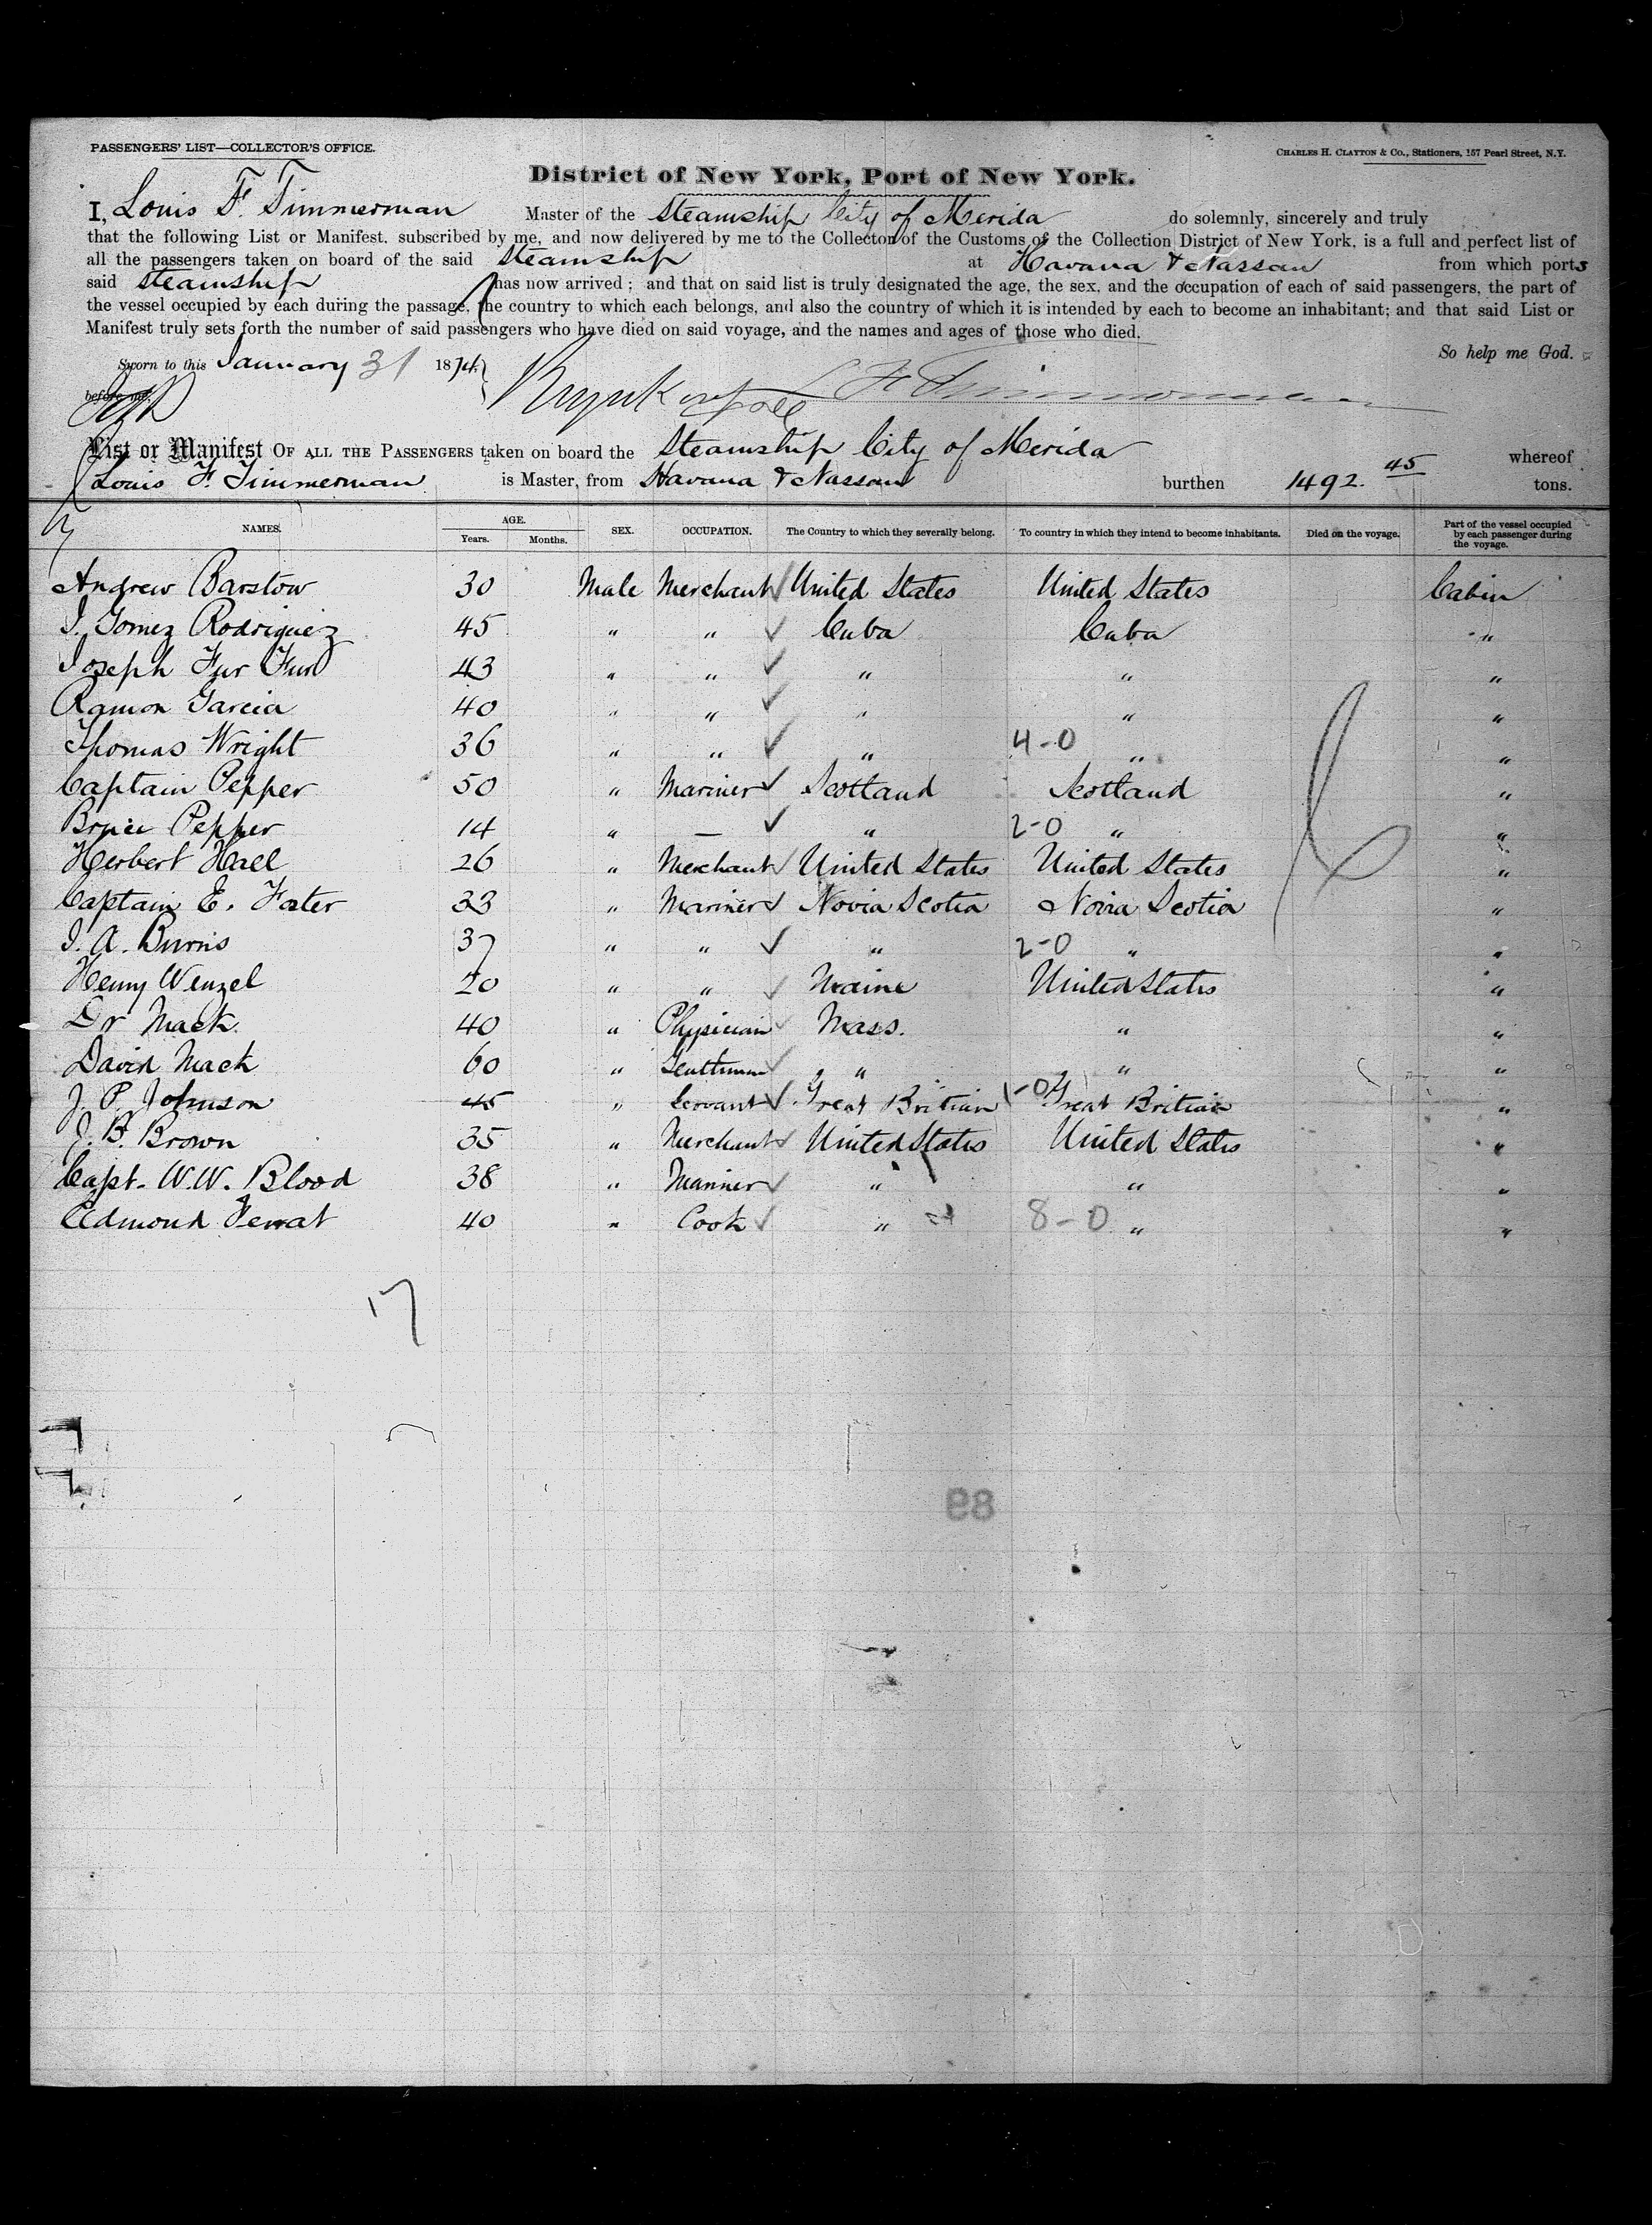 PASSENGERS' LIST—COLLECTOR'S OFFICE.
CHARLES H. CLAYTON & CO., Stationers, 157 Pearl Street, N.Y.
District of New York, Port of New York.
I, Louis F. Timmerman Master of the Steamship City of Merida do solemnly, sincerely and truly
that the following List or Manifest. subscribed by me, and now delivered by me to the Collector of the Customs of the Collection District of New York, is a full and perfect list of
all the passengers taken on board of the said Steamship at Havana & Nassau from which ports
said Steamship has now arrived ; and that on said list is truly designated the age, the sex, and the occupation of each of said passengers, the part of
the vessel occupied by each during the passage, the country to which each belongs, and also the country of which it is intended by each to become an inhabitant; and that said List or
Manifest truly sets forth the number of said passengers who have died on said voyage, and the names and ages of those who died.
So help me God.
Sworn to this January 31 1874
before me,
L F Timmerman
List or Manifest OF ALL THE PASSENGERS taken on board the Steamship City of Merida whereof
Louis F. Timmerman is Master, from Havana & Nassau burthen 1492. 45 tons.
NAMES. AGE. Years. Months. SEX. OCCUPATION. The Country to which they severally belong. To country in which they intend to become inhabitants. Died on the voyage. Part of the vessel occupied by each passenger during the voyage.
Andrew Barstow 30 Male Merchant United States United States Cabin
J. Gomez Rodriguez 45 " " Cuba Cuba "
Joseph Fur Fur 43 " " " " "
Ramon Garcia 40 " " " " "
Thomas Wright 36 " " " 4-0 " "
Captain Pepper 50 " Mariner Scotland Scotland "
Bruce Pepper 14 " — " 2-0 " "
Herbert Hall 26 " Merchant United States United States "
Captain E. Foster 33 " Mariner Novia Scotia Novia Scotia "
J. A. Burns 37 " " " 2-0 " "
Henry Wenzel 20 " " Maine United States "
Dr Mack. 40 " Physician Mass. " "
David Mack 60 " Gentleman " " "
J. P. Johnson 45 " Servant Great Britian 1-0 Great Britian "
J. B. Brown 35 " Merchant United States United States "
Capt. W.W. Blood 38 " Mariner " " "
Edmond Ferrat 40 " Cook " 8-0 " "
17
98